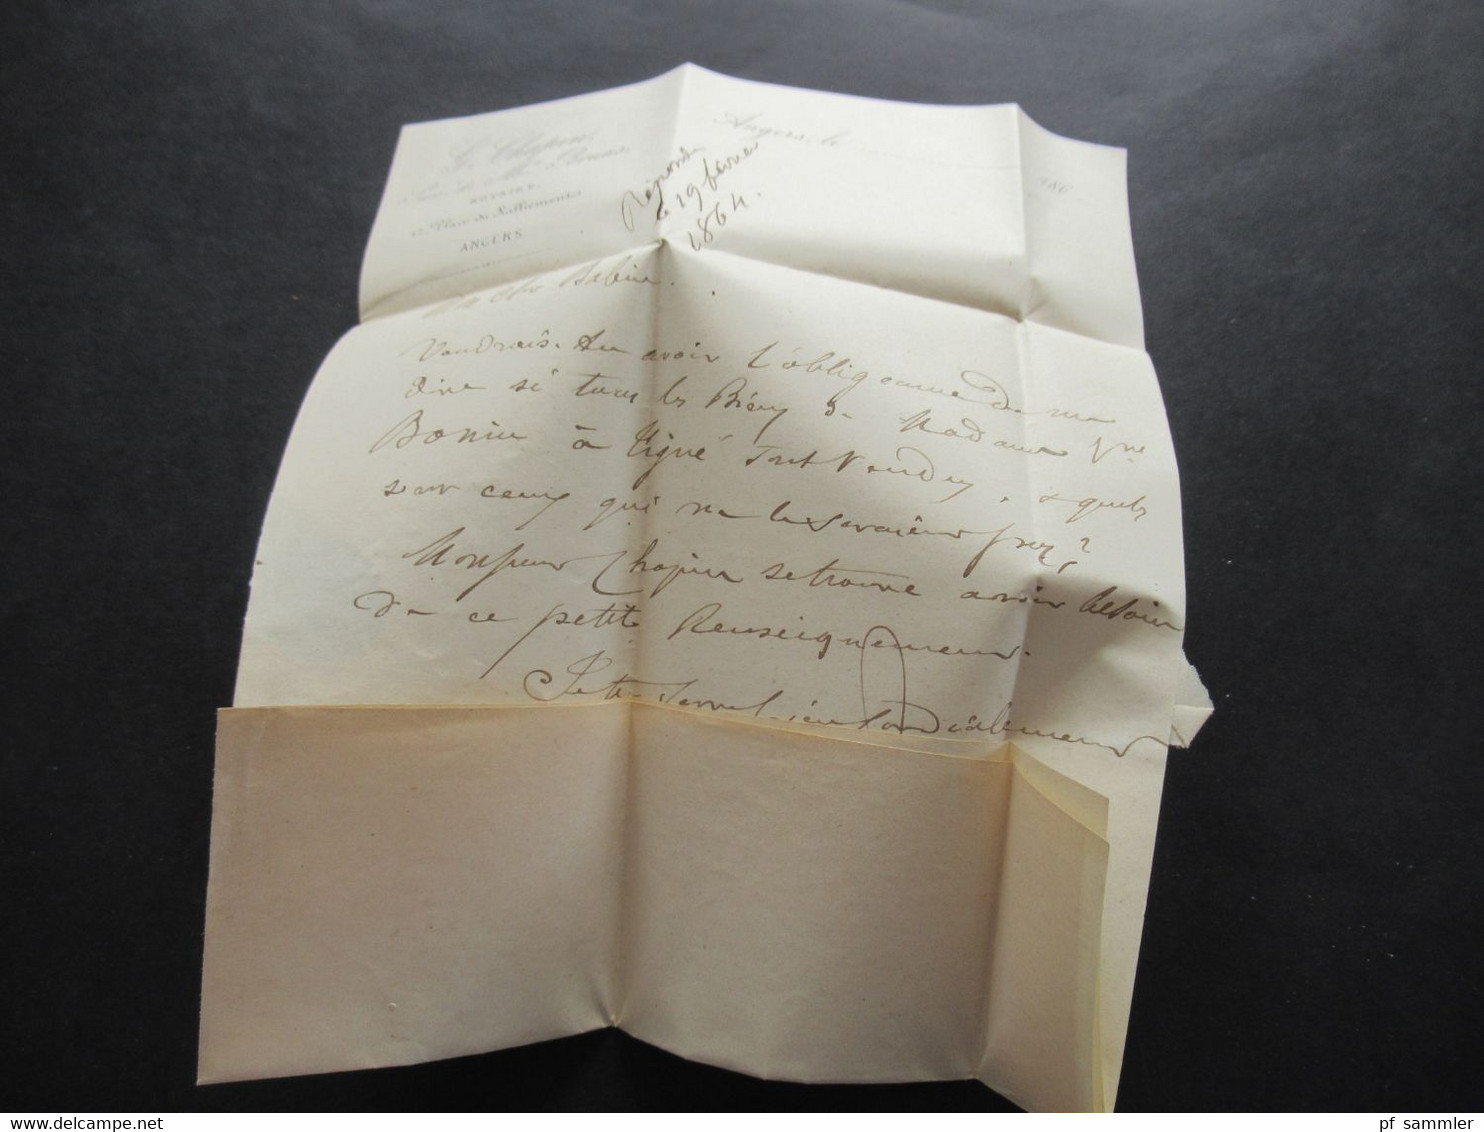 Chapin
NOTAIRE.
Place du Ralliement
ANGERS
Angers, le 186
Répondu
le 19 février
1864.
Voudrais-tu avoir l'obligeance de me
dire si tous les Biens de Madame Vve
à Tigné sont Vendus, & quels
sont ceux qui ne le seraient pas?
Monsieur Chapin se trouve avoir besoin
de ce petit Renseignement.
Je te serre bien Cordialement
pf sammler